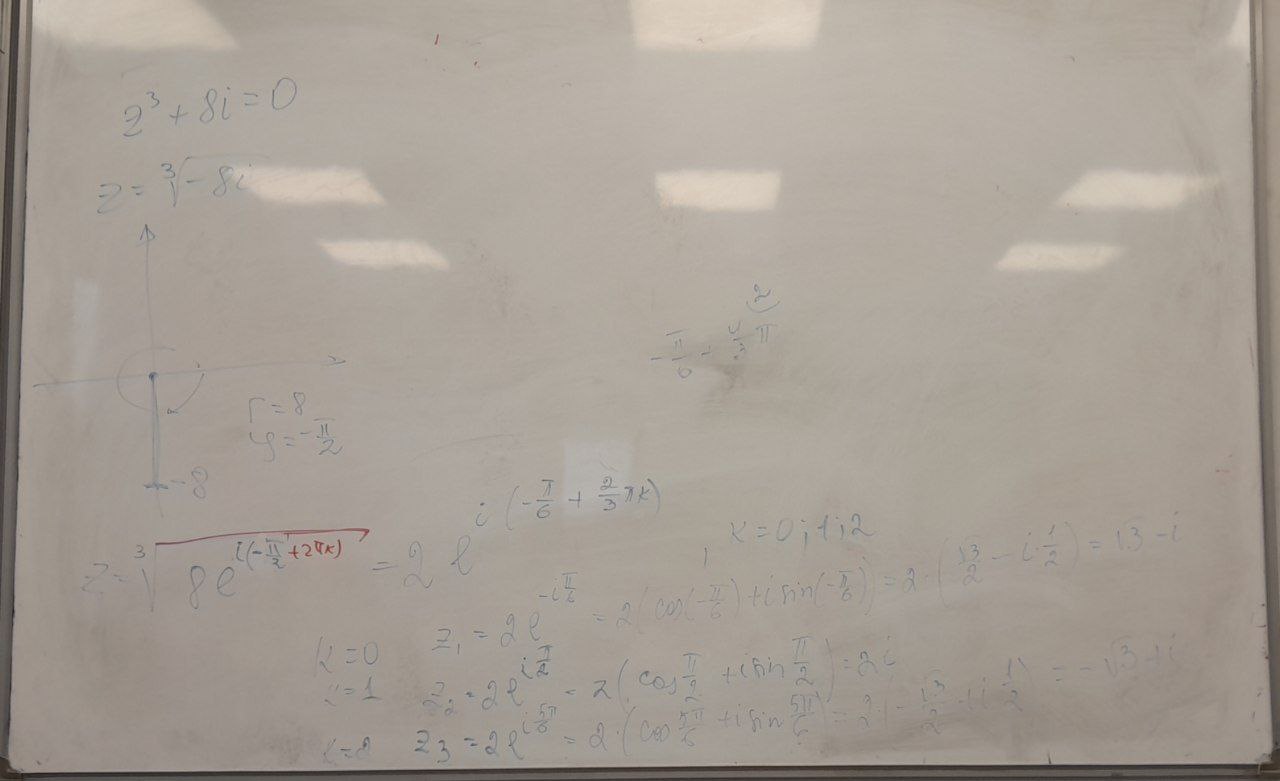 z³ + 8i = 0
z = ∛(-8i)
r = 8
φ = -π/2
-8
-π/6 + 4/3 π
2
z = ∛(8e^(i(-π/2 + 2πk))) = 2e^(i(-π/6 + 2/3 πk)), k = 0; 1; 2
k=0 z₁ = 2e^(-iπ/6) = 2(cos(-π/6) + i sin(-π/6)) = 2·(√3/2 - i·1/2) = √3 - i
k=1 z₂ = 2e^(iπ/2) = 2(cos π/2 + i sin π/2) = 2i
k=2 z₃ = 2e^(i5π/6) = 2·(cos 5π/6 + i sin 5π/6) = 2·(-√3/2 + i 1/2) = -√3 + i